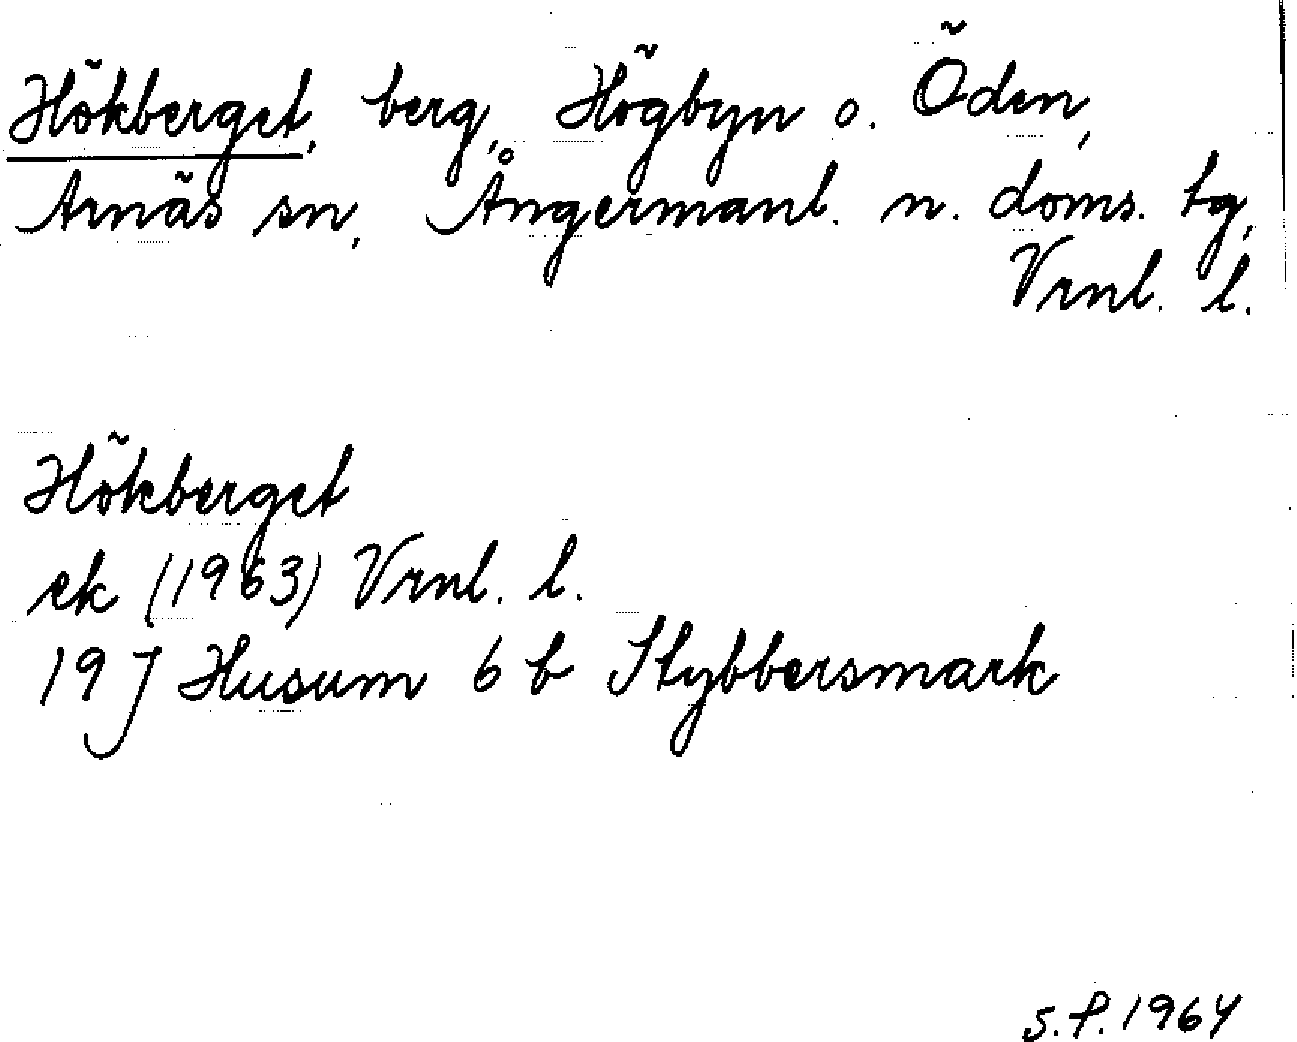 Hökberget, berg, Högbyn o. Öden,
Arnäs sn, Ångermanl. n. doms. tg,
Vrnl. l.
Hökberget
ek (1963) Vrnl. l.
19 J Husum 6 b Stybbersmark
S.P. 1964